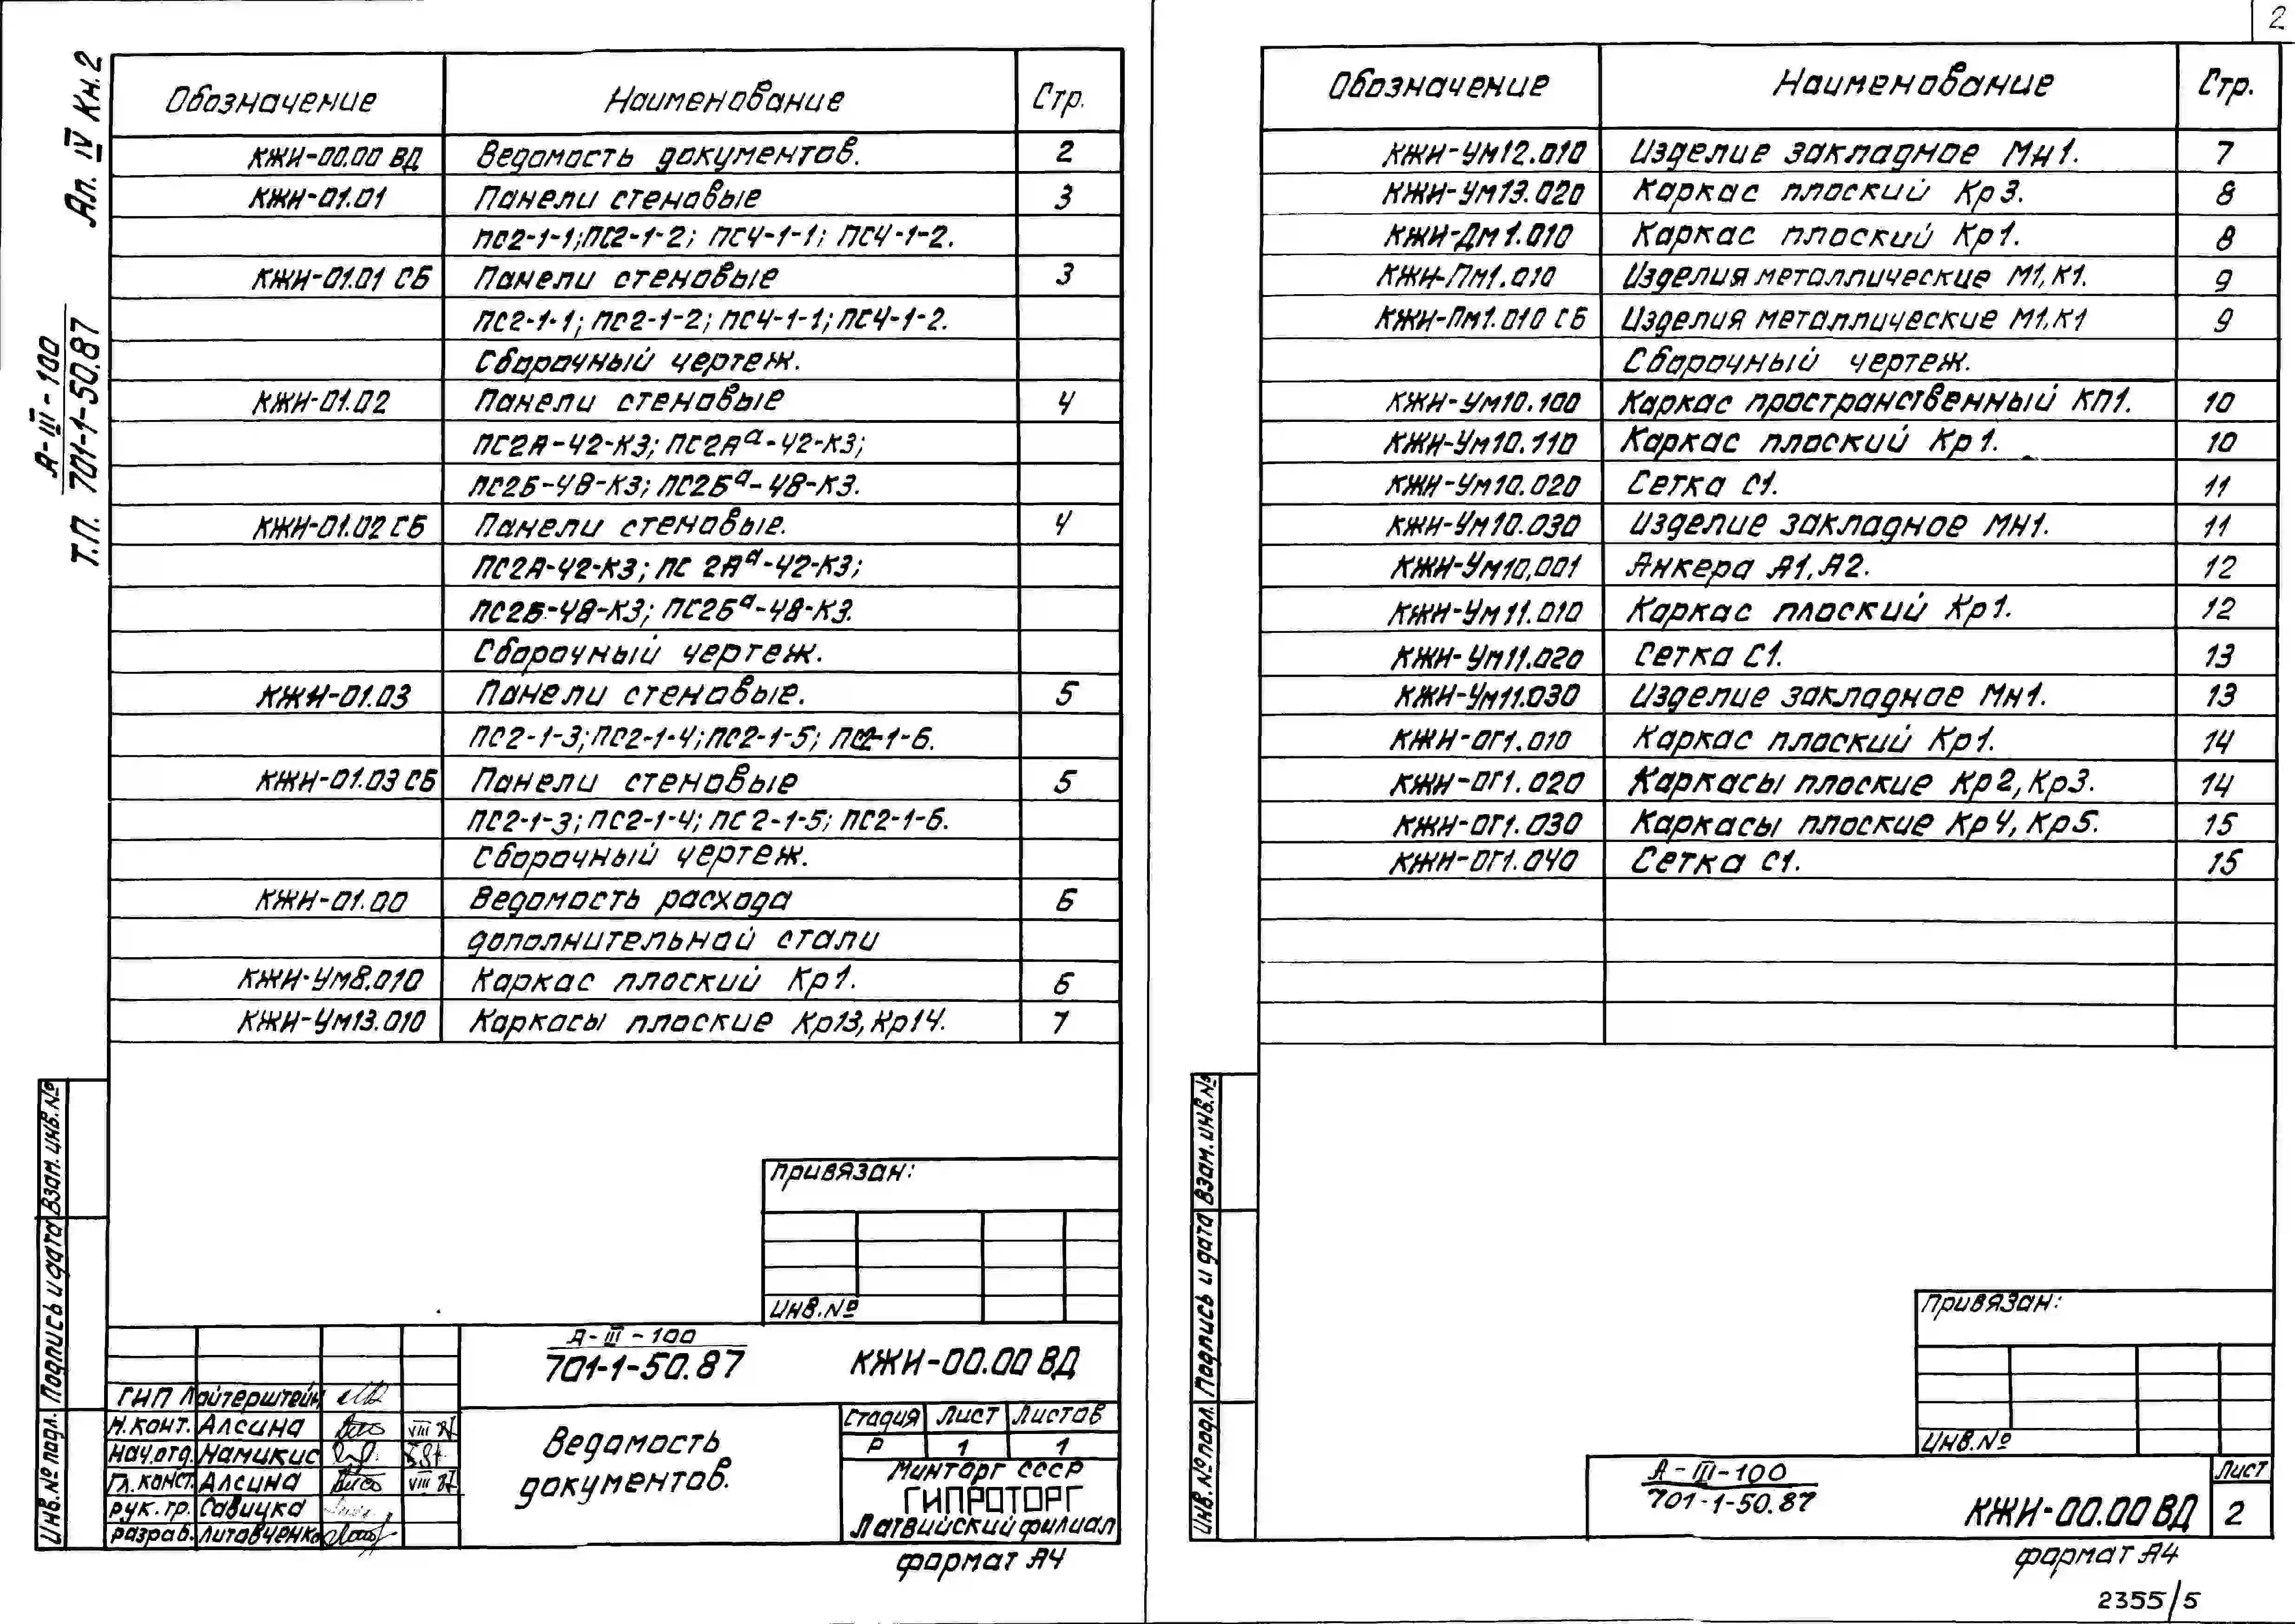 Ал. IV Кн.2
А-III-100
Т.П. 701-1-50.87
Обозначение Наименование Стр.
КЖИ-00.00 ВД Ведомость документов. 2
КЖИ-01.01 Панели стеновые 3
ПС2-1-1; ПС2-1-2; ПС4-1-1; ПС4-1-2.
КЖИ-01.01 СБ Панели стеновые 3
ПС2-1-1; ПС2-1-2; ПС4-1-1; ПС4-1-2.
Сборочный чертеж.
КЖИ-01.02 Панели стеновые 4
ПС2А-42-К3; ПС2Аᵃ-42-К3;
ПС2Б-48-К3; ПС2Бᵃ-48-К3.
КЖИ-01.02 СБ Панели стеновые. 4
ПС2А-42-К3; ПС 2Аᵃ-42-К3;
ПС2Б-48-К3; ПС2Бᵃ-48-К3.
Сборочный чертеж.
КЖИ-01.03 Панели стеновые. 5
ПС2-1-3; ПС2-1-4; ПС2-1-5; ПС2-1-6.
КЖИ-01.03 СБ Панели стеновые 5
ПС2-1-3; ПС2-1-4; ПС 2-1-5; ПС2-1-6.
Сборочный чертеж.
КЖИ-01.00 Ведомость расхода 6
дополнительной стали
КЖИ-Ум8.010 Каркас плоский Кр1. 6
КЖИ-Ум13.010 Каркасы плоские Кр13, Кр14. 7
Привязан:
Инв.№
А-III-100
701-1-50.87
КЖИ-00.00 ВД
ГИП Лойтерштейн
Н.конт. Алсина VIII 87
Нач.отд. Намикис
Гл.конст. Алсина VIII 87
рук. гр. Савицка
разраб. Литовченко
Ведомость
документов.
Стадия Лист Листов
Р 1 1
Минторг СССР
ГИПРОТОРГ
Латвийский филиал
формат А4
Взам. инв.№
Подпись и дата
Инв.№ подл.
2
Обозначение Наименование Стр.
КЖИ-Ум12.010 Изделие закладное Мн1. 7
КЖИ-Ум13.020 Каркас плоский Кр3. 8
КЖИ-Дм1.010 Каркас плоский Кр1. 8
КЖИ-Пм1.010 Изделия металлические М1, К1. 9
КЖИ-Пм1.010 СБ Изделия металлические М1, К1 9
Сборочный чертеж.
КЖИ-Ум10.100 Каркас пространственный КП1. 10
КЖИ-Ум10.110 Каркас плоский Кр1. 10
КЖИ-Ум10.020 Сетка С1. 11
КЖИ-Ум10.030 Изделие закладное МН1. 11
КЖИ-Ум10,001 Анкера А1, А2. 12
КЖИ-Ум11.010 Каркас плоский Кр1. 12
КЖИ-Ум11.020 Сетка С1. 13
КЖИ-Ум11.030 Изделие закладное Мн1. 13
КЖИ-ОГ1.010 Каркас плоский Кр1. 14
КЖИ-ОГ1.020 Каркасы плоские Кр2, Кр3. 14
КЖИ-ОГ1.030 Каркасы плоские Кр4, Кр5. 15
КЖИ-ОГ1.040 Сетка С1. 15
Привязан:
Инв.№
А-III-100
701-1-50.87
КЖИ-00.00 ВД
Лист
2
формат А4
2355/5
Взам. инв.№
Подпись и дата
Инв.№ подл.